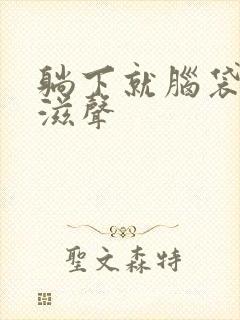 躺下就腦袋
滋聲
聖文森特